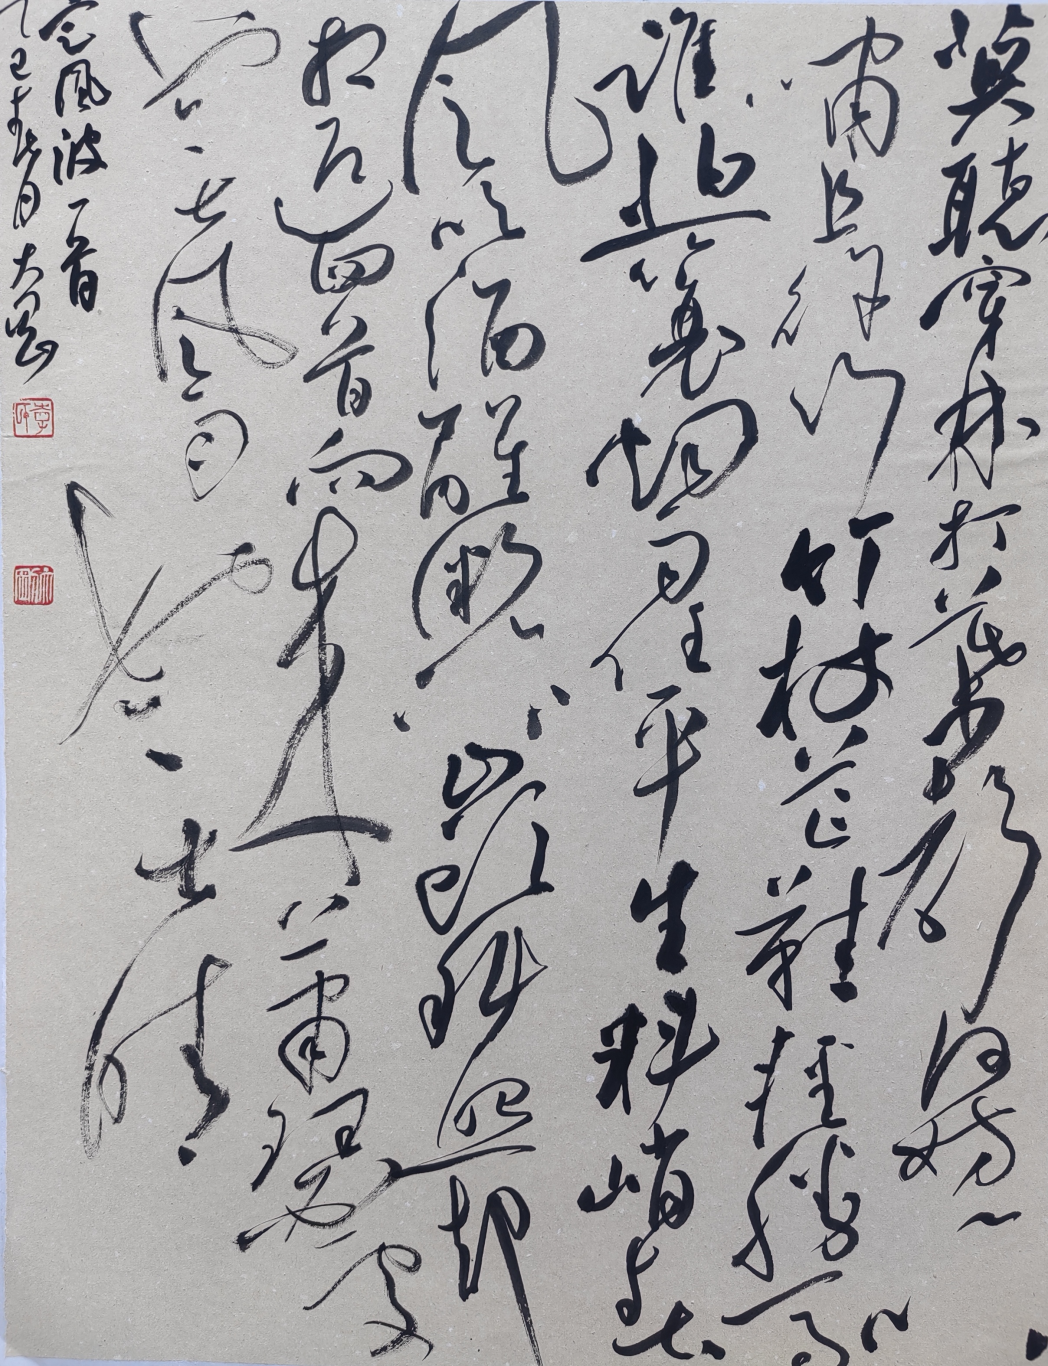 莫聽穿林打葉聲何妨吟
嘯且徐行竹杖芒鞋輕勝馬
誰怕一蓑煙雨任平生料峭春
風吹酒醒微冷山頭斜照却
相迎回首向來蕭瑟處
歸去也無風雨也無晴
定風波一首
乙巳春月大